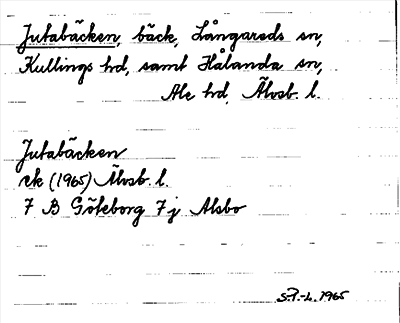 Jutabäcken, bäck, Långareds sn,
Kullings hd, samt Hålanda sn,
Ale hd, Älvsb. l.
Jutabäcken
ek (1965) Älvsb. l.
7 B Göteborg 7 j Alsbo
S.P.-L. 1965